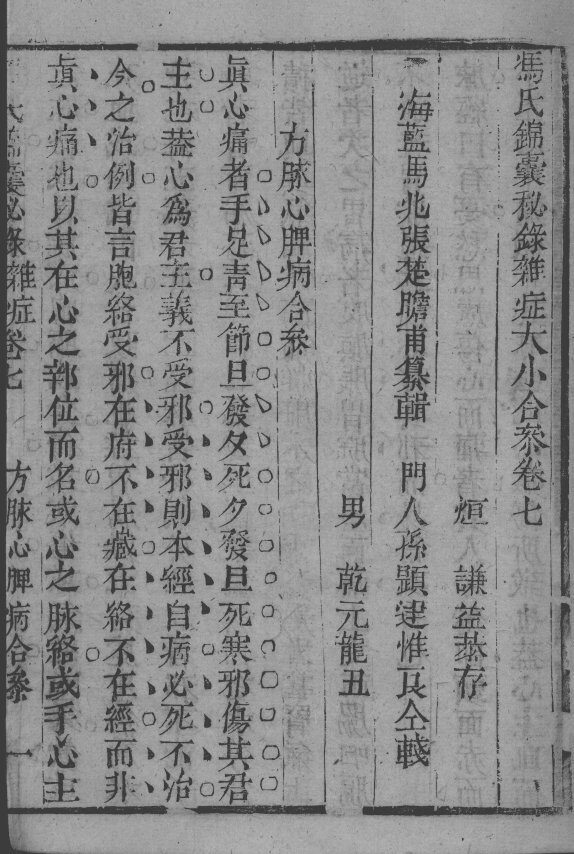 馮氏錦囊秘錄雜症大小合叅卷七
烜 謙益叅存
海藍馬兆張楚瞻甫纂輯 門人孫顯達惟良仝較
男 乾元龍丑
方脉心脾病合叅
眞心痛者手足靑至節旦發夕死夕發旦死寒邪傷其君
主也葢心爲君主義不受邪受邪則本經自病必死不治
今之治例皆言胞絡受邪在府不在藏在絡不在經而非
眞心痛也以其在心之部位而名或心之脉絡或手心主
氏錦囊秘錄雜症卷七 方脉心脾病合叅 一